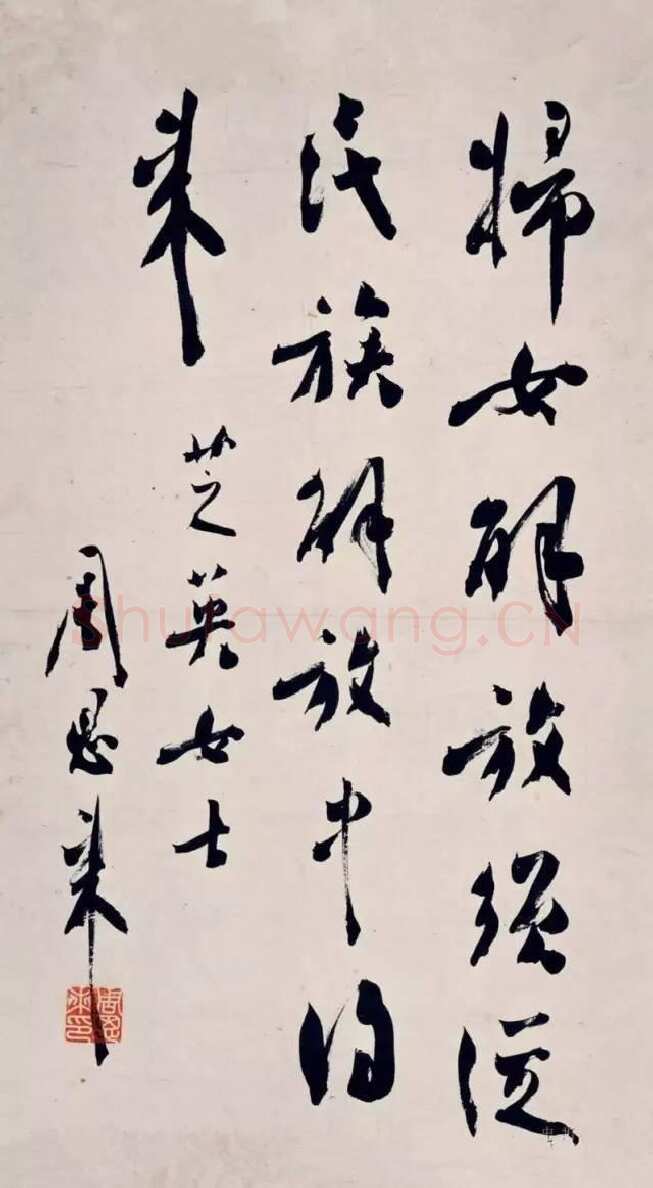 婦女解放須從
民族解放中得
來
芝英女士
周恩來
周恩來印
Shufawang.CN